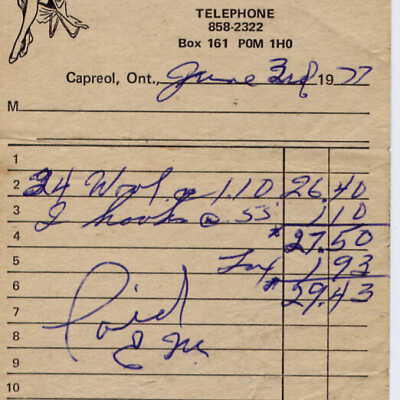 TELEPHONE
858-2322
Box 161 P0M 1H0
Capreol, Ont., June 3rd 1977
M
1
2 24 Wool @ 1.10 26.40
3 2 hooks @ .55 1.10
4 * 27.50
5 Tax 1.93
6 * 29.43
7 Paid
8
9
10